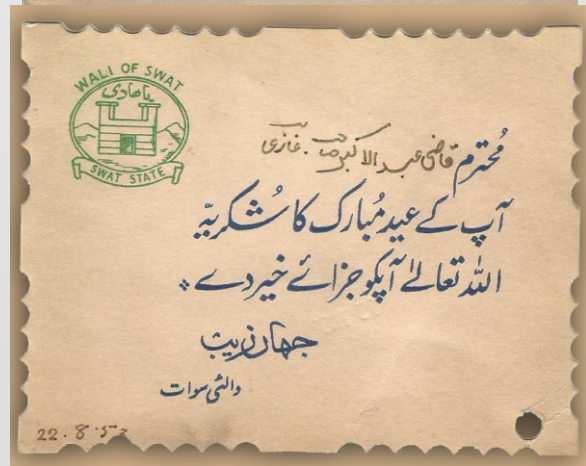 WALI OF SWAT
یاھادی
SWAT STATE
مُحترم قاضی عبد الاکبر صاحب
آپ کے عید مُبارک کا شُکریّہ
اللہ تعالےٰ آپکو جزائے خیر دے
جہان زیب
والئی سوات